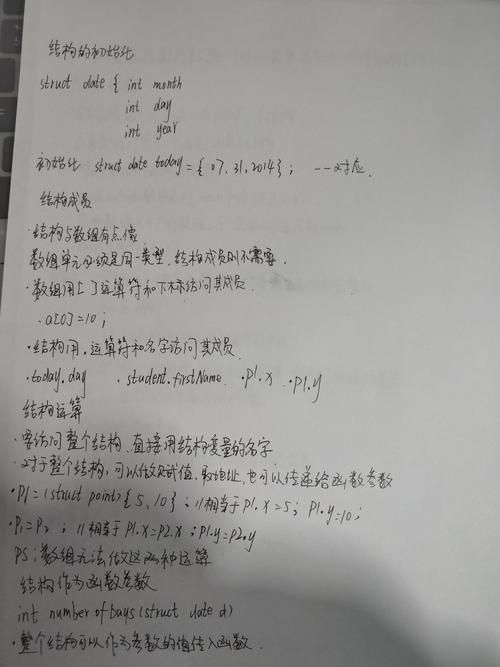 结构的初始化
struct date { int month
int day
int year
初始化 struct date today = { 07, 31, 2014 } ; 一一对应.
结构成员
·结构与数组有点像
数组单元必须是同一类型, 结构成员则不需要.
·数组用[ ]运算符和下标访问其成员.
·a[0]=10 ;
·结构用 . 运算符和名字访问其成员.
·today.day ·student.firstName ·p1.x ·p1.y
结构运算
·要访问整个结构, 直接用结构变量的名字
·对于整个结构, 可以做赋值, 取地址, 也可以传递给函数参数
·P1 = (struct point) { 5, 10 } ; //相当于P1.x=5; P1.y=10;
·P1=P2 ; //相当于P1.x=P2.x ; P1.y=P2.y
PS: 数组无法做这两种运算
结构作为函数参数
int numberofbays (struct date d)
·整个结构可以作为参数的值传入函数.